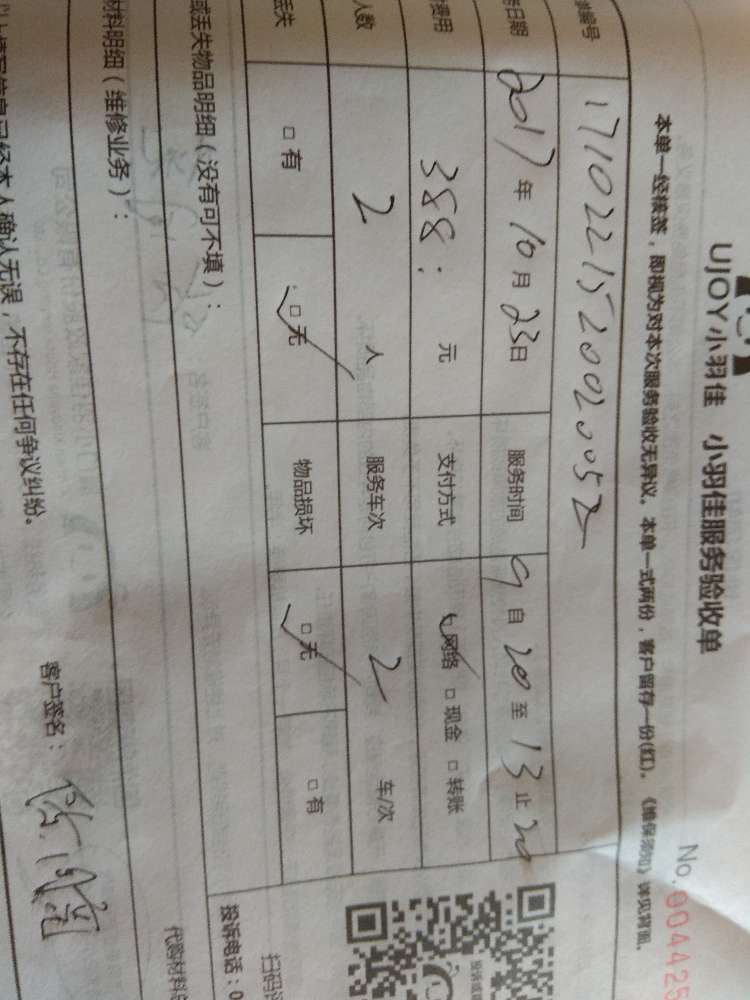 UJOY小羽佳 小羽佳服务验收单
No.004425
本单一经核签，即视为对本次服务验收无异议。本单一式两份，客户留存一份(红)。《维保须知》详见背面。
编号 1710221520020052
日期 2017年10月23日 服务时间 9自20至13止20
费用 388: 元 支付方式 ☑网络 □现金 □转账
人数 2 人 服务车次 2 车/次
丢失 □有 ☑无 物品损坏 ☑无 □有
丢失物品明细（没有可不填）：
投诉电话：0
材料明细（维修业务）：
代购材料
已经本人确认无误，不存在任何争议纠纷。
客户签名：